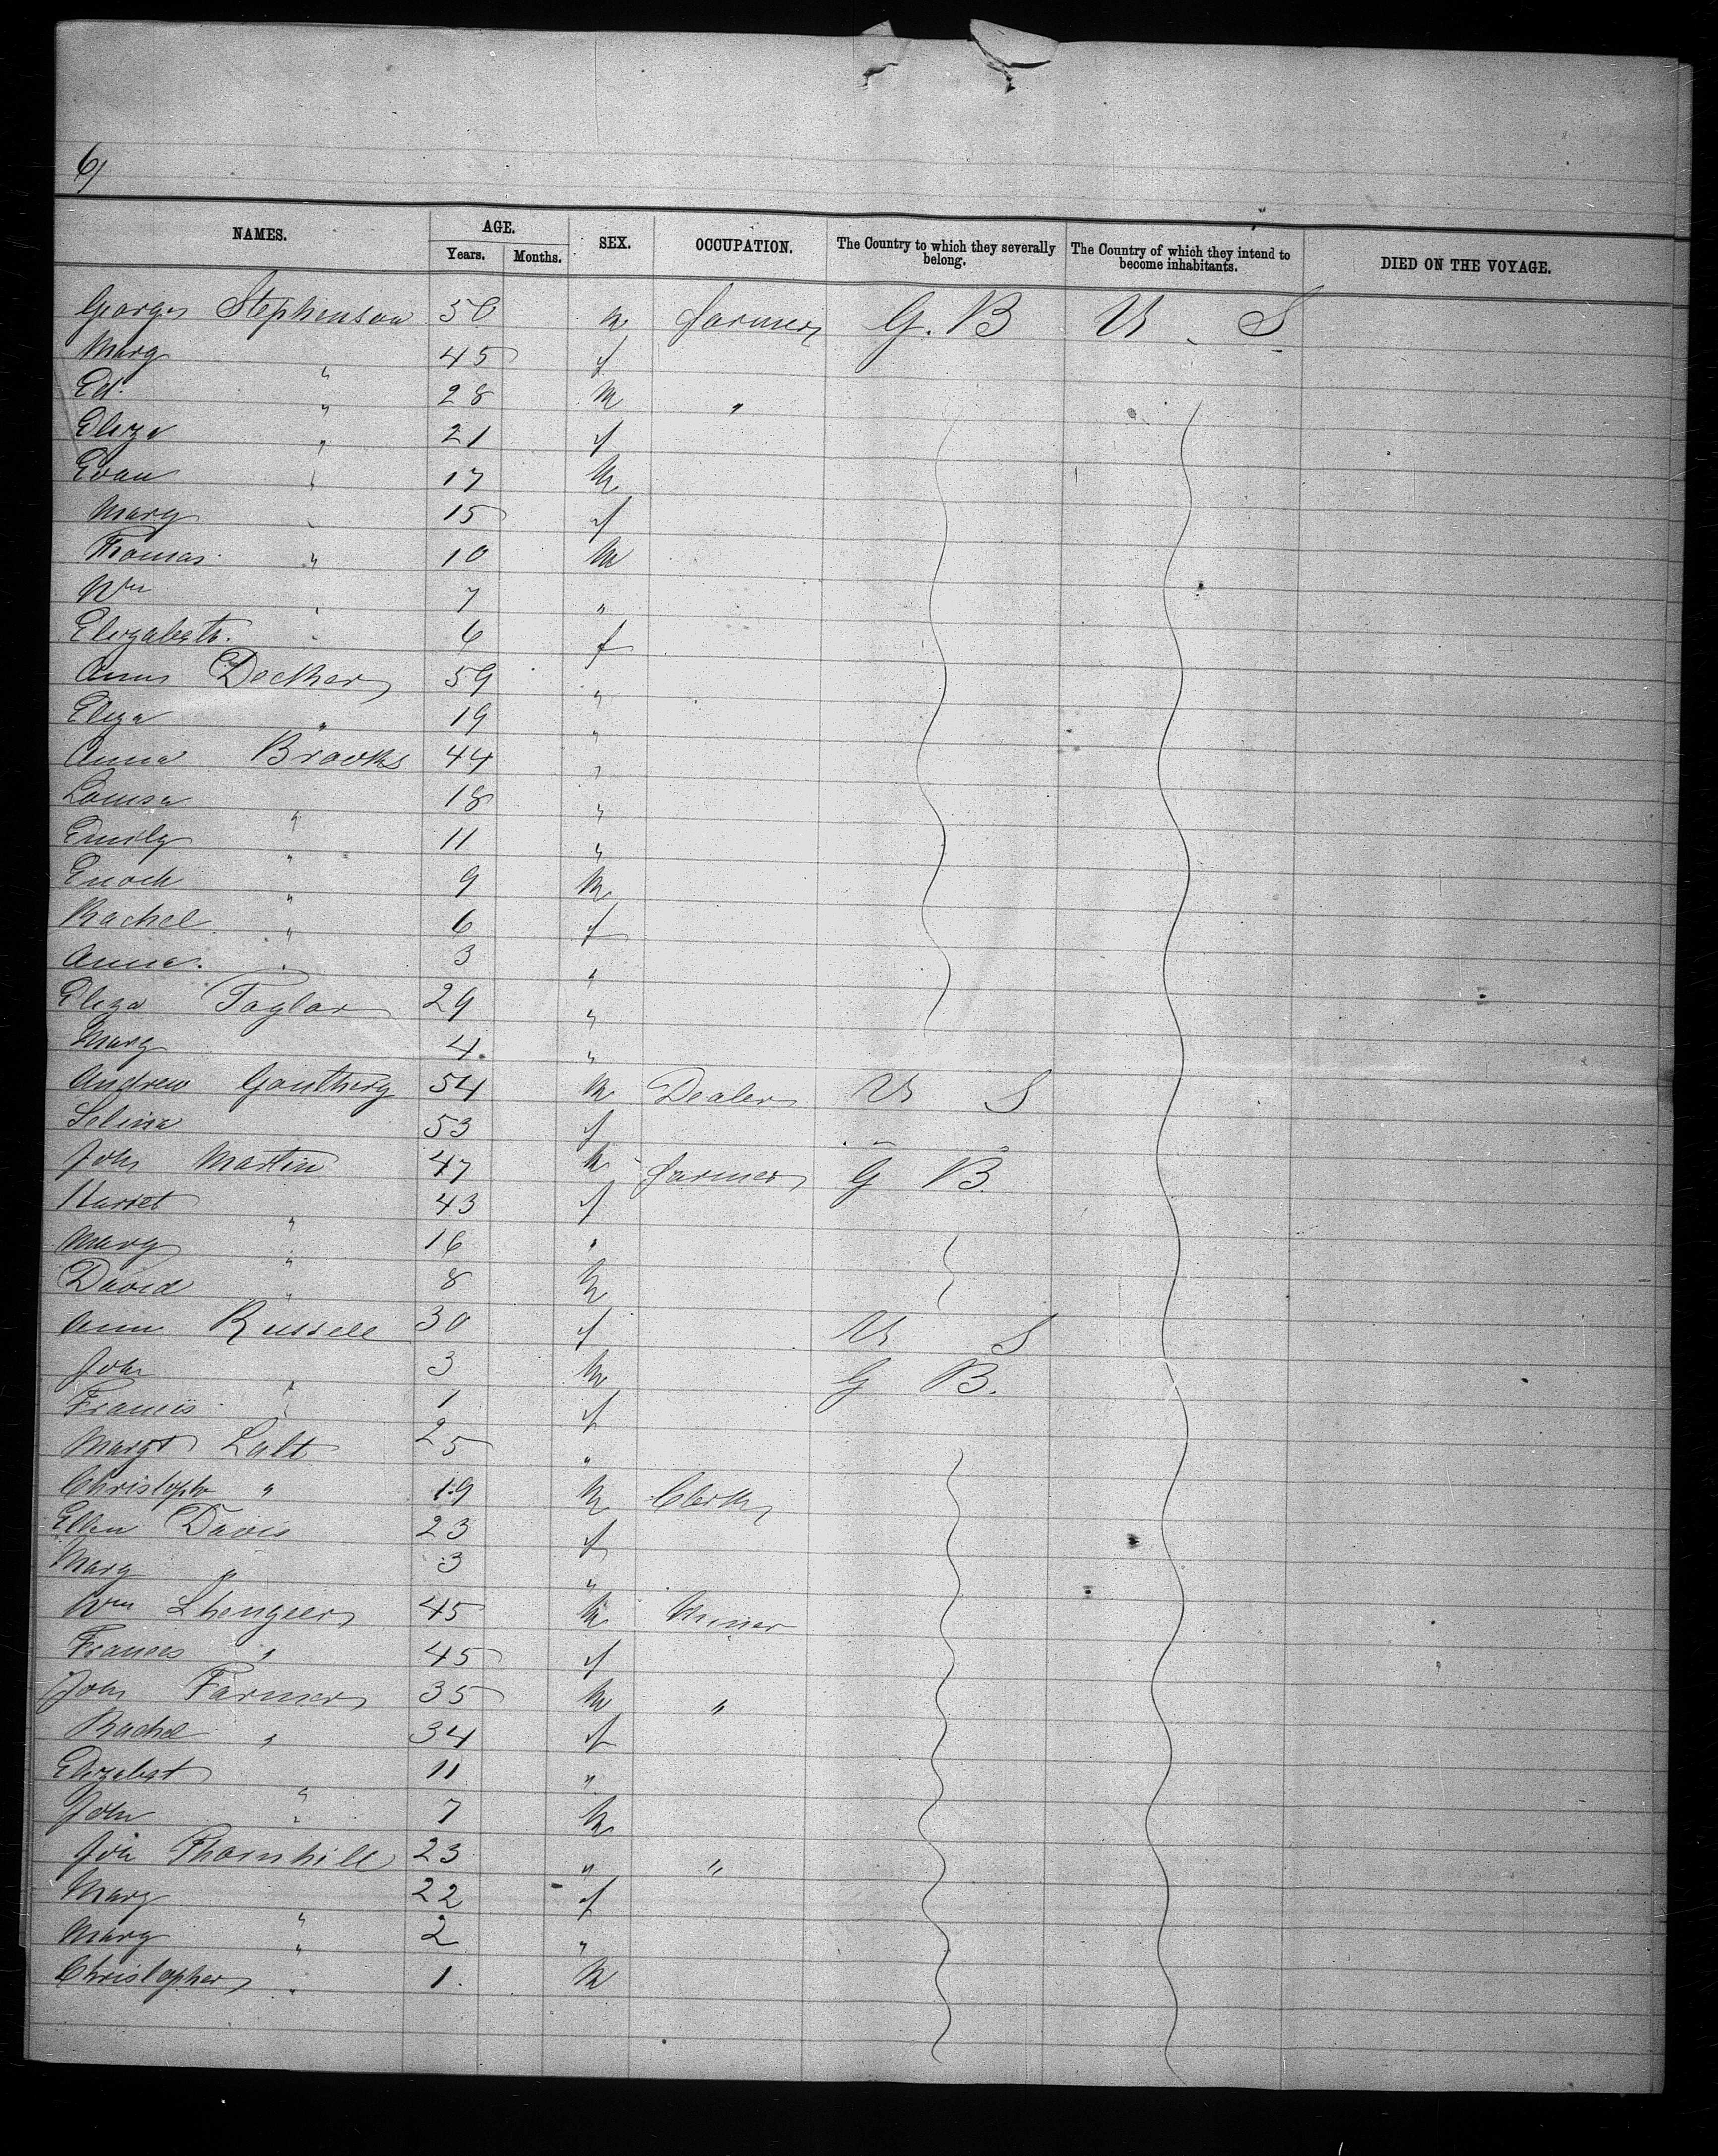 6/
NAMES. AGE. Years. Months. SEX. OCCUPATION. The Country to which they severally belong. The Country of which they intend to become inhabitants. DIED ON THE VOYAGE.
George Stephenson 50 m farmer G. B U. S
Mary " 45 f
Ed. " 28 m "
Eliza " 21 f
Evan " 17 m
Mary " 15 f
Thomas " 10 m
Wm " 7 "
Elizabeth " 6 f
Ann Decker 59 "
Eliza " 19 "
Anna Brooks 44 "
Louisa " 18 "
Emily " 11 "
Enoch " 9 m
Rachel " 6 f
Anna. " 3 "
Eliza Taylor 29 "
Mary 4. "
Andrew Gauthery 54 m Dealer U S
Selina 53 f
John Martin 47 m farmer G B.
Harret " 43 f
Mary " 16 "
David " 8 m
Ann Russell 30 f U S
John " 3 m G B.
Francis " 1 f
Margt Lalt 25 "
Christoph " 19 m Clerk
Ellen Davis 23 f
Mary " 3 "
Wm 45 m Miner
Frances " 45 f
John Farmer 35 m "
Rachel " 34 f
Elizabet " 11 "
John " 7 m
Thornhill 23 " "
Mary " 22 f
Mary " 2 "
Christopher " 1. m